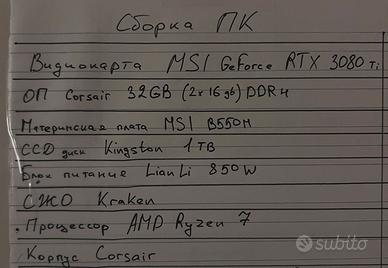 Сборка ПК
Видиокарта MSI GeForce RTX 3080 Ti
ОП Corsair 32GB (2x16gb) DDR4
Материнская плата MSI B550M
ССD диск Kingston 1TB
Блок питание LianLi 850W
СЖО Kraken
Процессор AMD Ryzen 7
Корпус Corsair
subito